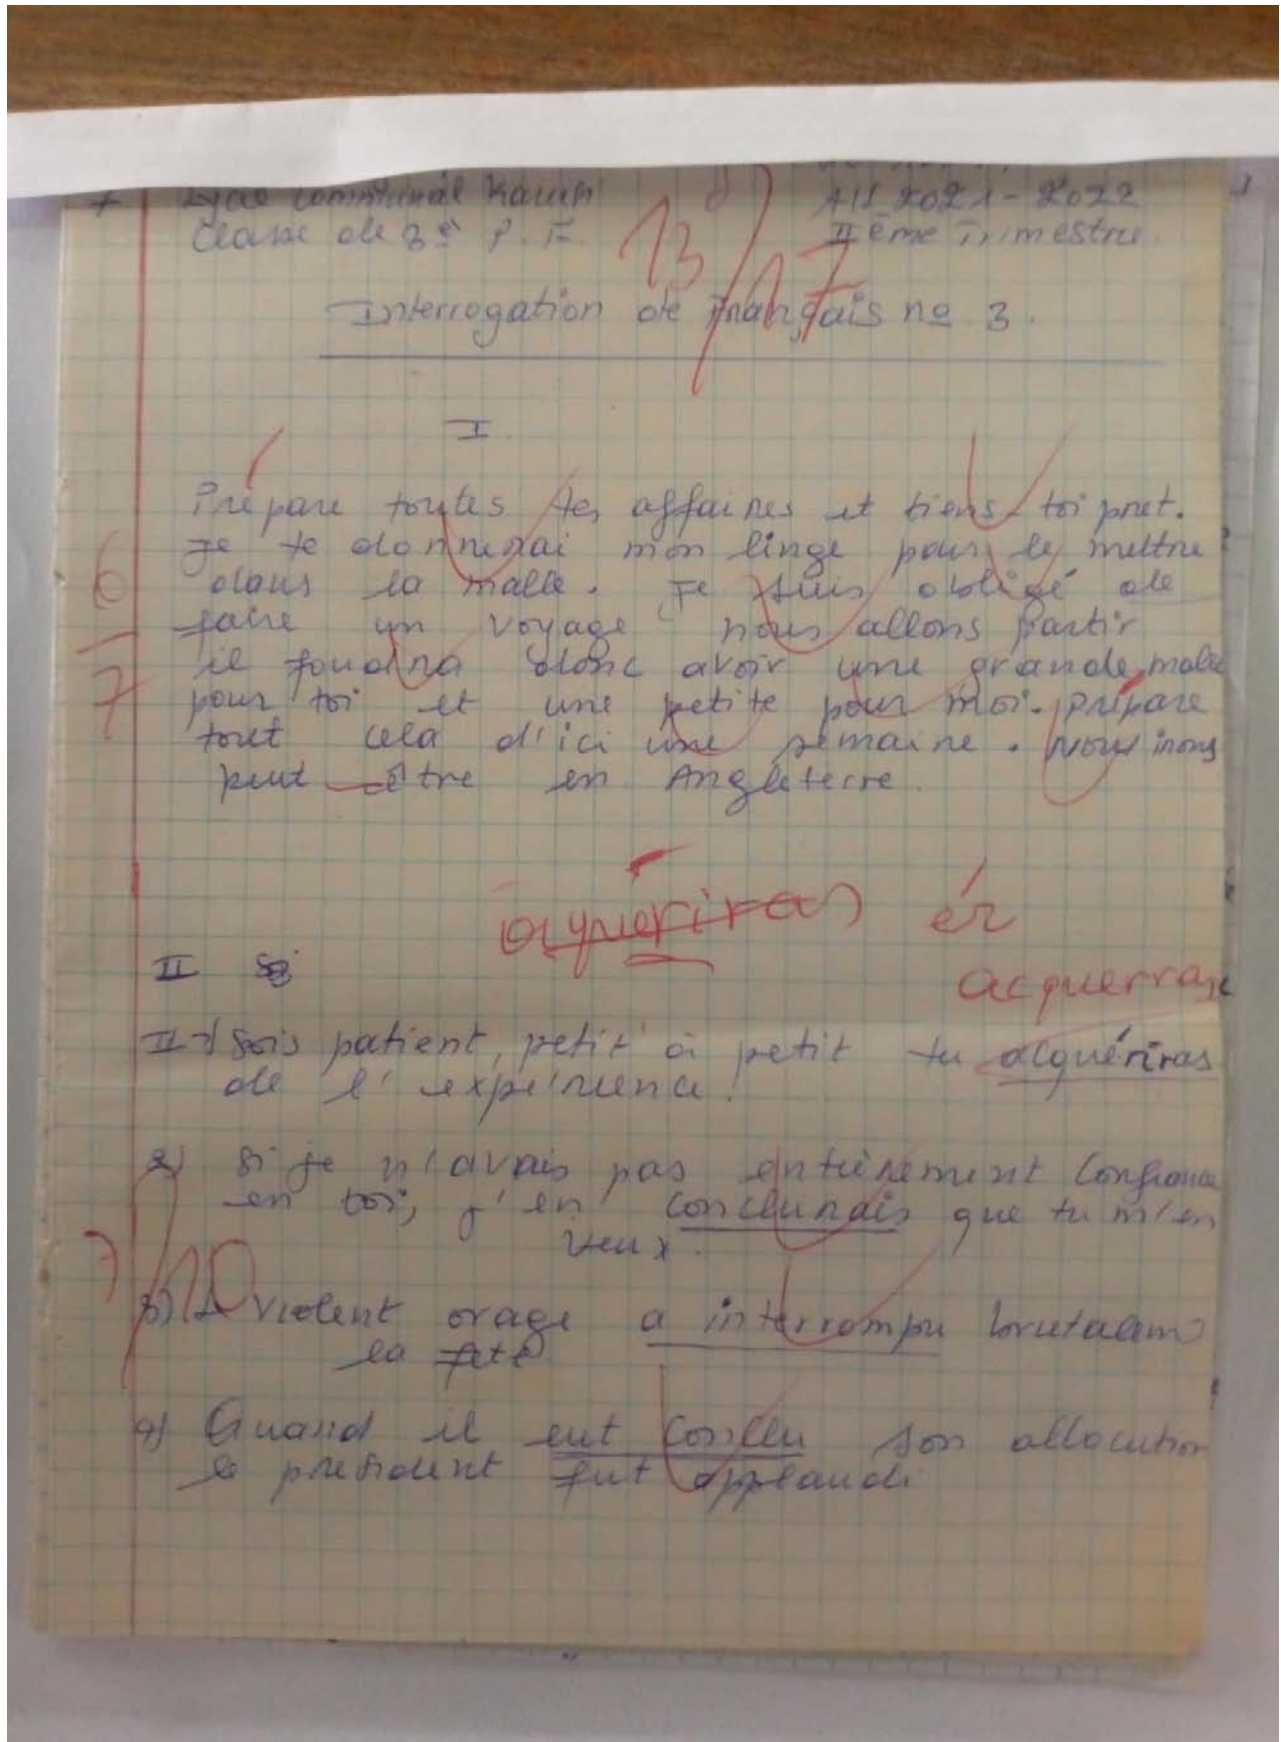 Lycée communal
AIS 2021-2022
Classe de 3e P. F.
IIème Trimestre.
13/17
Interrogation de Français no 3.
I
Prépare toutes tes affaires et tiens-toi pret.
Je te donnerai mon linge pour le mettre
dans la malle. Je suis obligé de
faire un voyage nous allons partir
il foudra donc avoir une grande malle
pour toi et une petite pour moi. prépare
tout cela d'ici une semaine. Nous irons
peut-être en Angleterre.
6
7
ér
II
acquerras
II 1) Sois patient, petit à petit tu
de l'expérience.
2) Si je n'avais pas entièrement confiance
en toi, j'en conclurais que tu m'en
veux.
7/10
3) violent orage a interrompu
la fete
4) Quand il eut son allocution
le président fut applaudi